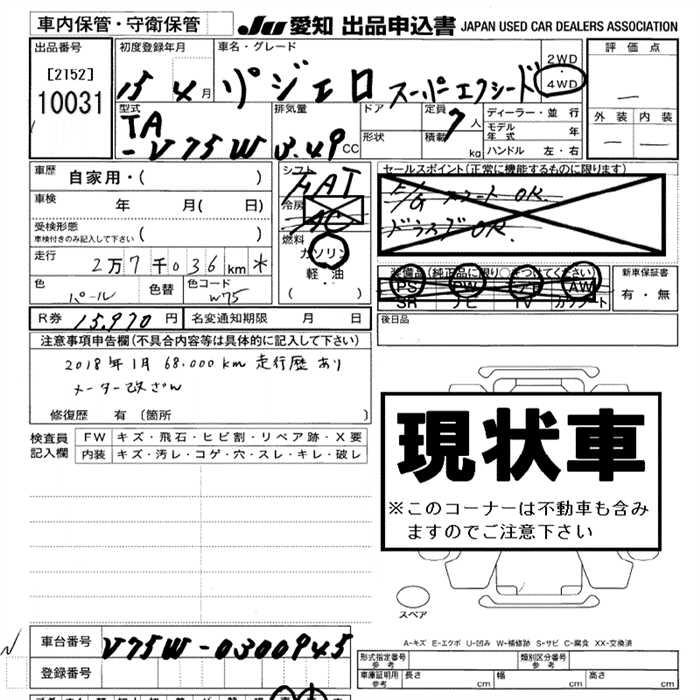 車内保管・守衛保管
JU 愛知 出品申込書 JAPAN USED CAR DEALERS ASSOCIATION
出品番号 初度登録年月 車名・グレード 2WD ・ 4WD 評価点
[2152]
10031
15 4月 パジェロ スーパーエクシード
型式 排気量 ドア 定員 ディーラー・並行 外装 内装
TA
-V75W 3.49cc 形状 7人 積載 kg モデル年式 年
ハンドル 左・右
車歴 自家用・( )
車検 年 月( 日)
受検形態
車検付きのみ記入して下さい ( )
走行 2万7千036km *
色 パール 色替 色コード W75
シフト
冷房 AC
燃料
ガソリン
軽油
( ・ )
セールスポイント(正常に機能するものに限ります)
装備品(純正品に限り○をつけてください) 新車保証書
PS PW AW 有・無
SR ナビ TV カワシート
R券 15,970円 名変通知期限 月 日 後日品
注意事項申告欄(不具合内容等は具体的に記入して下さい)
2018年1月 68.000km 走行歴あり
メーター改ざん
修復歴 有 〔箇所 〕
検査員記入欄 FW キズ・飛石・ヒビ割・リペア跡・X要
内装 キズ・汚レ・コゲ・穴・スレ・キレ・破レ
現状車
※このコーナーは不動車も含み
ますのでご注意下さい
スペア
A-キズ E-エクボ U-凹み W-補修跡 S-サビ C-腐食 XX-交換済
車台番号 V75W-0300945
登録番号
形式指定番号 参考 類別区分番号 参考
車庫証明用 参考 長さ cm 幅 cm 高さ cm